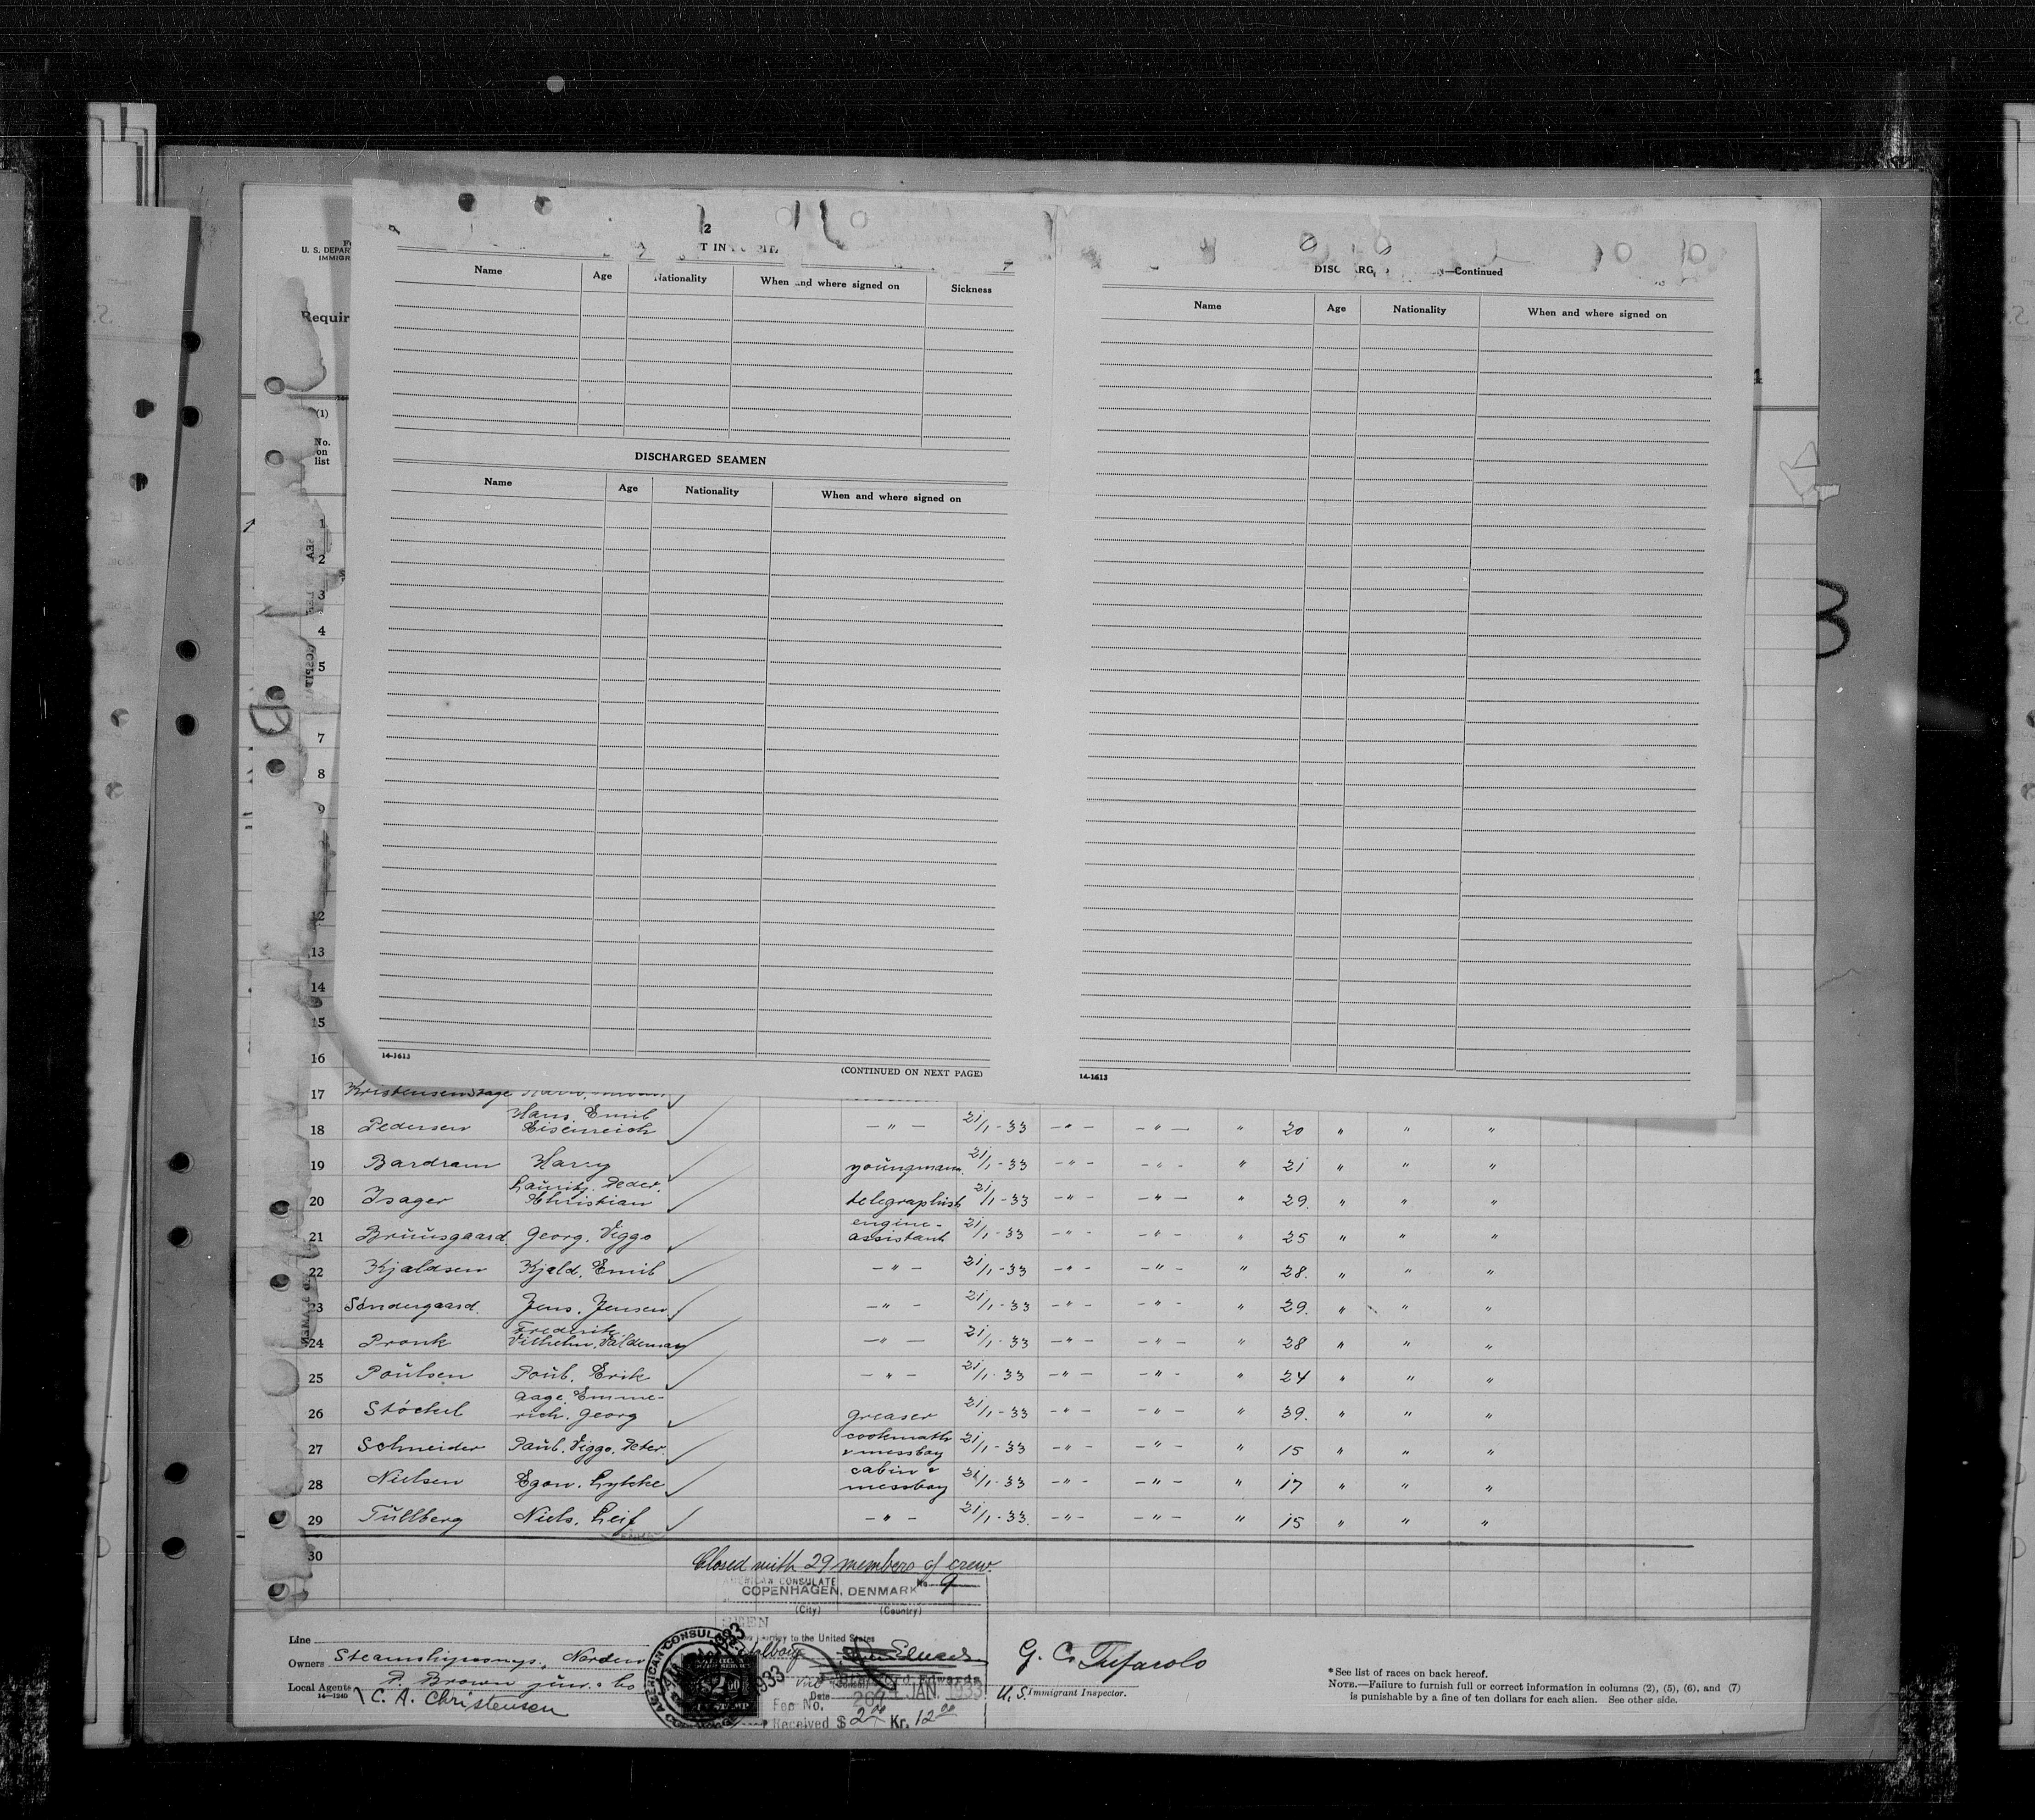 U. S. DEPAR
IMMIGR
Requir
2
T IN
Name Age Nationality When and where signed on Sickness
DISCHARGED SEAMEN
Name Age Nationality When and where signed on
14-1613
(CONTINUED ON NEXT PAGE)
—Continued
Name Age Nationality When and where signed on
14-1613
4
3
(1)
No.
on
list
1
2
3
4
5
7
8
9
12
13
14
15
16
17 Kristensen
18 Pedersen Hans. Emil Eisenreich — " — 21/1-33 — " — — " — " 20 " " "
19 Bardram Harry youngmann. 21/1-33 — " — — " — " 21 " " "
20 Isager Lauritz. Peder. Christian telegraphist 21/1-33 — " — — " — " 29. " " "
21 Brüüsgaard. Georg. Viggo engine-assistant 21/1-33 — " — — " — " 25 " " "
22 Kjaldsen Kjald. Emil — " — 21/1-33 — " — — " — " 28. " " "
23 Söndergaard. Jens. Jensen — " — 21/1-33 — " — — " — " 29. " " "
24 Pronk Frederik. Vilhelm. Valdemar — " — 21/1-33 — " — — " — " 28 " " "
25 Poulsen Poul. Erik — " — 21/1-33 — " — — " — " 24 " " "
26 Stöckel Aage. Emmerich. Georg greaser 21/1-33 — " — — " — " 39. " " "
27 Schneider Paul. Viggo. Peter. cookmath & messboy 21/1-33 — " — — " — " 15 " " "
28 Nielsen Egon. Lykke cabin & messboy 21/1-33 — " — — " — " 17 " " "
29 Tullberg Niels. Leif — " — 21/1-33. — " — — " — " 15 " " "
30
Closed with 29 members of crew.
AMERICAN CONSULATE No. 9
COPENHAGEN, DENMARK
(City) (Country)
SEEN
to the United States
Line
Owners Norden
Local Agents P. Brown jun. & Co
14-1240
C. A. Christensen
AMERICAN CONSUL
Edwards
Date JAN. 1933
Fee No. 269
Received $ 2.00 Kr. 12.00
G. C. Tufarolo
U. S. Immigrant Inspector.
* See list of races on back hereof.
NOTE.—Failure to furnish full or correct information in columns (2), (5), (6), and (7)
is punishable by a fine of ten dollars for each alien. See other side.